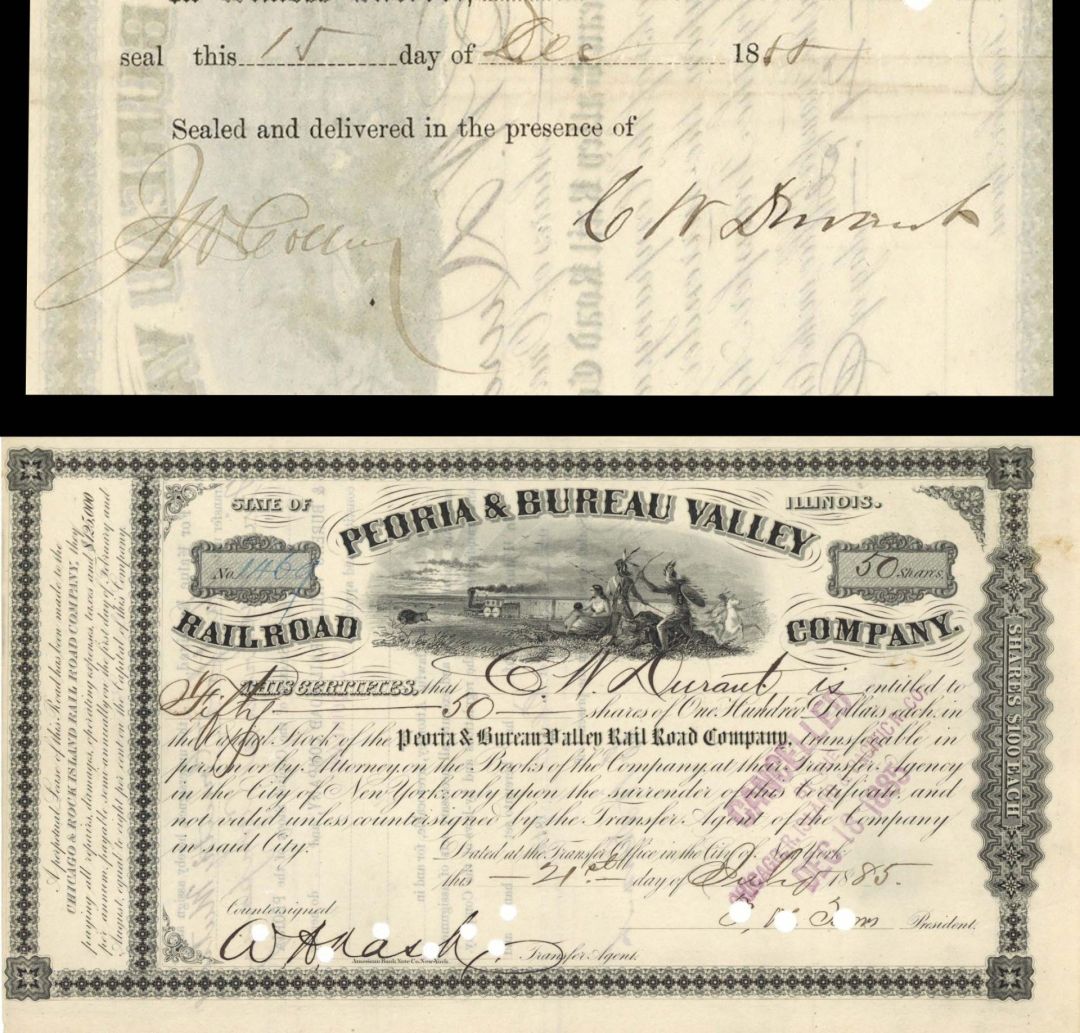 seal this 15 day of Dec 1885
Sealed and delivered in the presence of
C W Durant
STATE OF ILLINOIS.
PEORIA & BUREAU VALLEY
No. 1469
50 Shares.
RAILROAD COMPANY.
THIS CERTIFIES, that C. W. Durant is entitled to
Fifty 50 shares of One Hundred Dollars each, in
the Capital Stock of the Peoria & Bureau Valley Rail Road Company, transferable in
person or by Attorney, on the Books of the Company, at the Transfer Agency
in the City of New York only upon the surrender of this Certificate, and
not valid unless countersigned by the Transfer Agent of the Company
in said City.
Dated at the Transfer Office in the City of New York
this 21st day of July 1885.
Countersigned
President.
W. G. Nash. Transfer Agent.
American Bank Note Co. New York.
A perpetual Lease of this Road has been made to the
CHICAGO & ROCK ISLAND RAIL ROAD COMPANY, they
paying all repairs, damages, operating expenses, taxes and $125,000
per annum, payable semi-annually on the first day of February and
August, equal to eight per cent on the Capital of this Company.
SHARES $100 EACH
CANCELLED
CHICAGO, R. ISL'D & PACIFIC R. CO.
DEC 16 1885